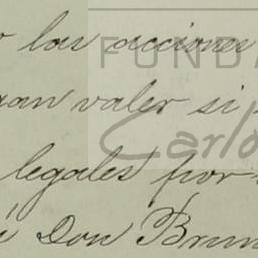 las acciones
FUNDA
valer si
Carlo
legales por
Don Brun